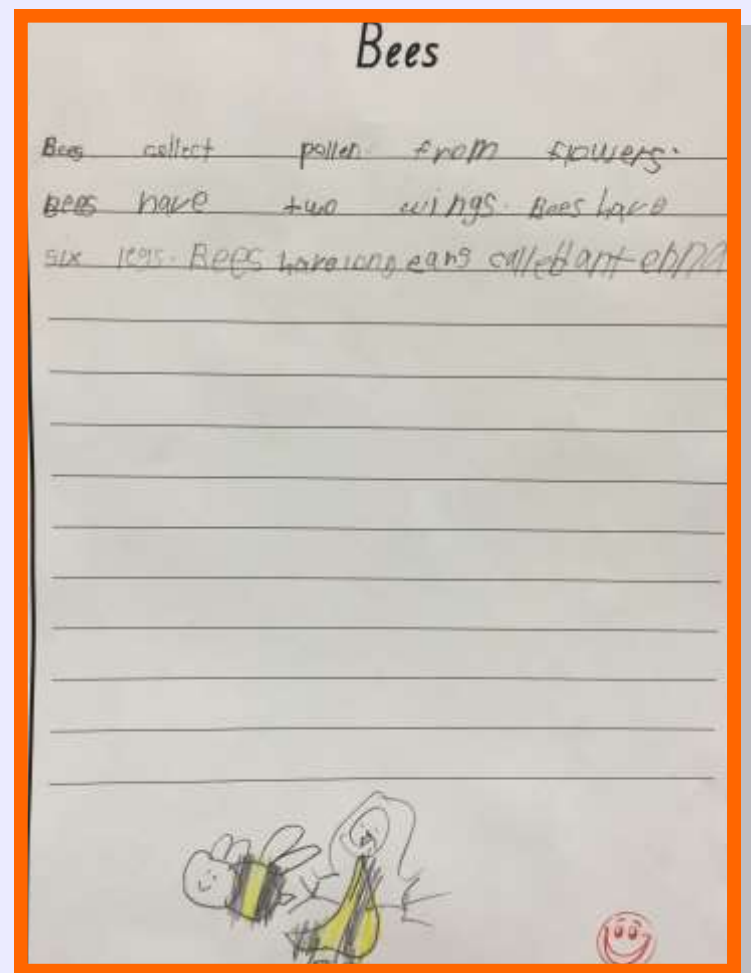 Bees
Bees collect pollen from flowers.
Bees have two wings. Bees have
six legs. Bees have long ears called antenna